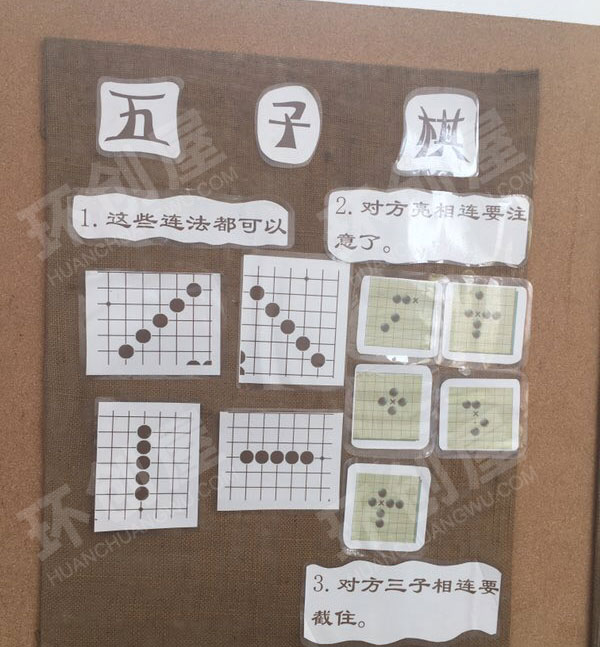 五 子 棋
1. 这些连法都可以
2. 对方亮相连要注
意了。
3. 对方三子相连要
截住。
环创屋
HUANCHUANGWU.COM
环创屋
HUANCHUANGWU.COM
环创屋
HUANCHUANGWU.COM
环创屋
HUANCHUANGWU.COM